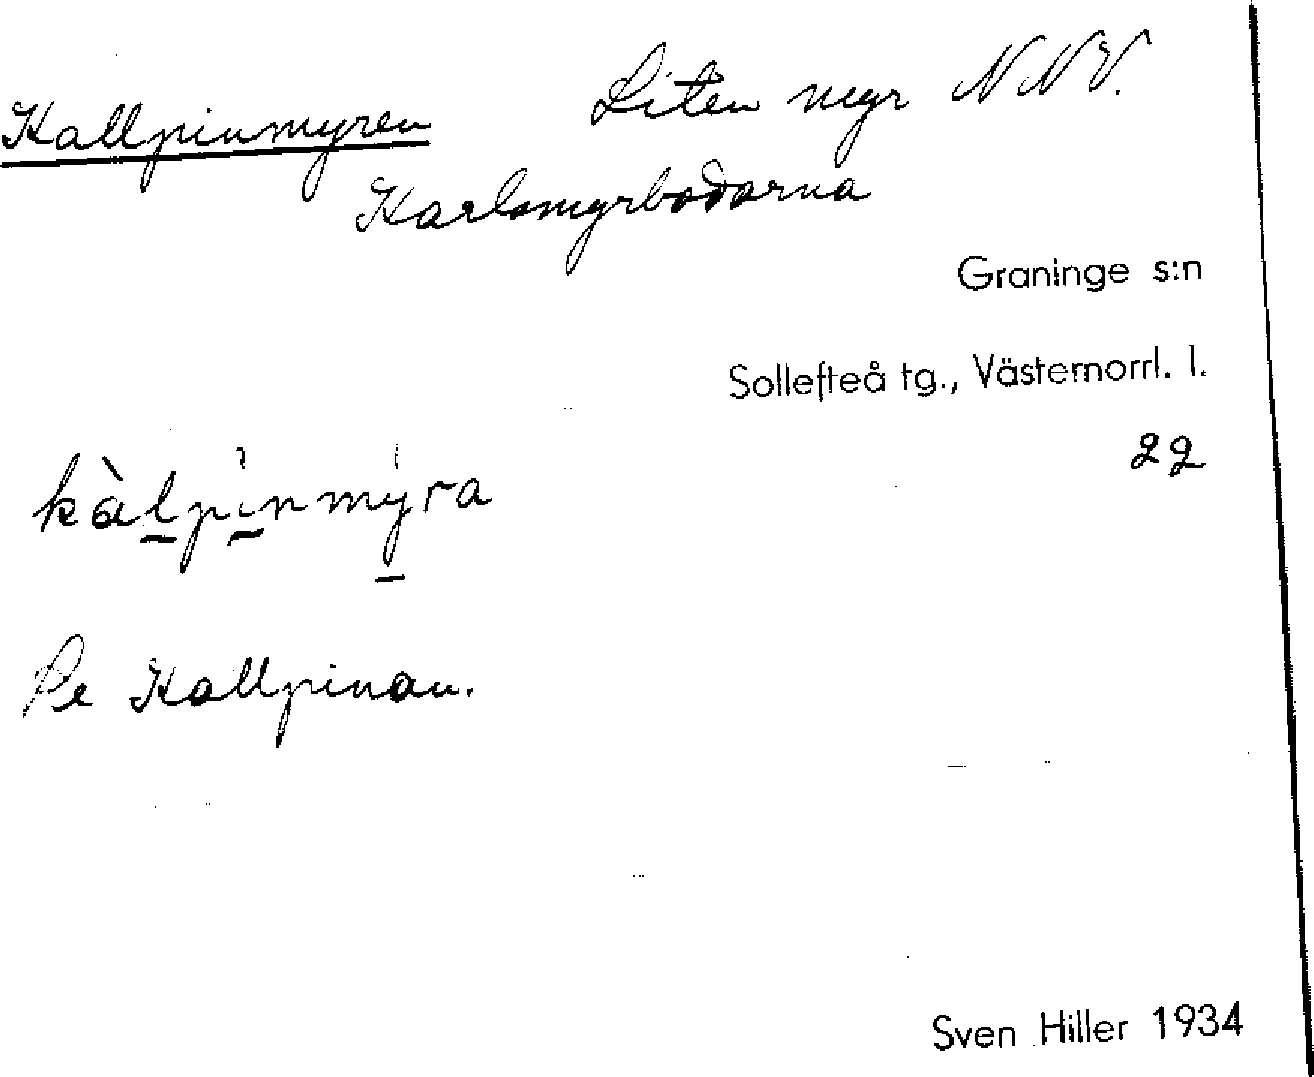 Kallpinmyren Liten myr NNV.
Karlsmyrbodarna
Graninge s:n
Sollefteå tg., Västernorrl. l.
22
kàlpìnmyra
Se Kallpinan.
Sven Hiller 1934